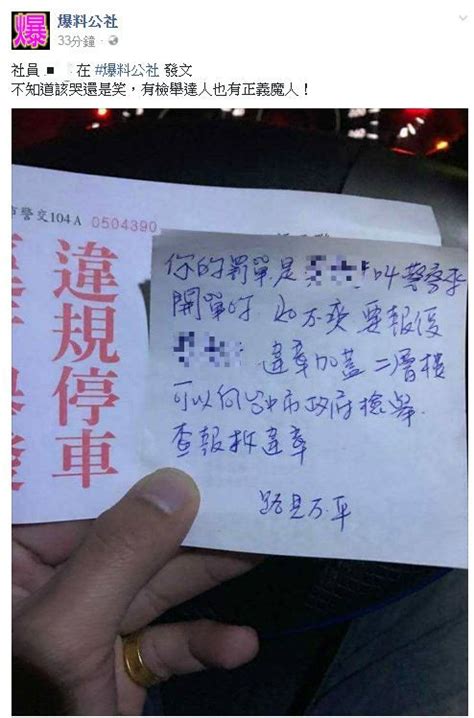 爆
爆料公社
33分鐘
社員 在 #爆料公社 發文
不知道該哭還是笑,有檢舉達人也有正義魔人!
市警交104A 0504390
違規停車
你的罰單是 叫警察來
開單的 如不爽要報復
違章加蓋二層樓
可以向台中市政府檢舉.
查報拆違章
路見不平